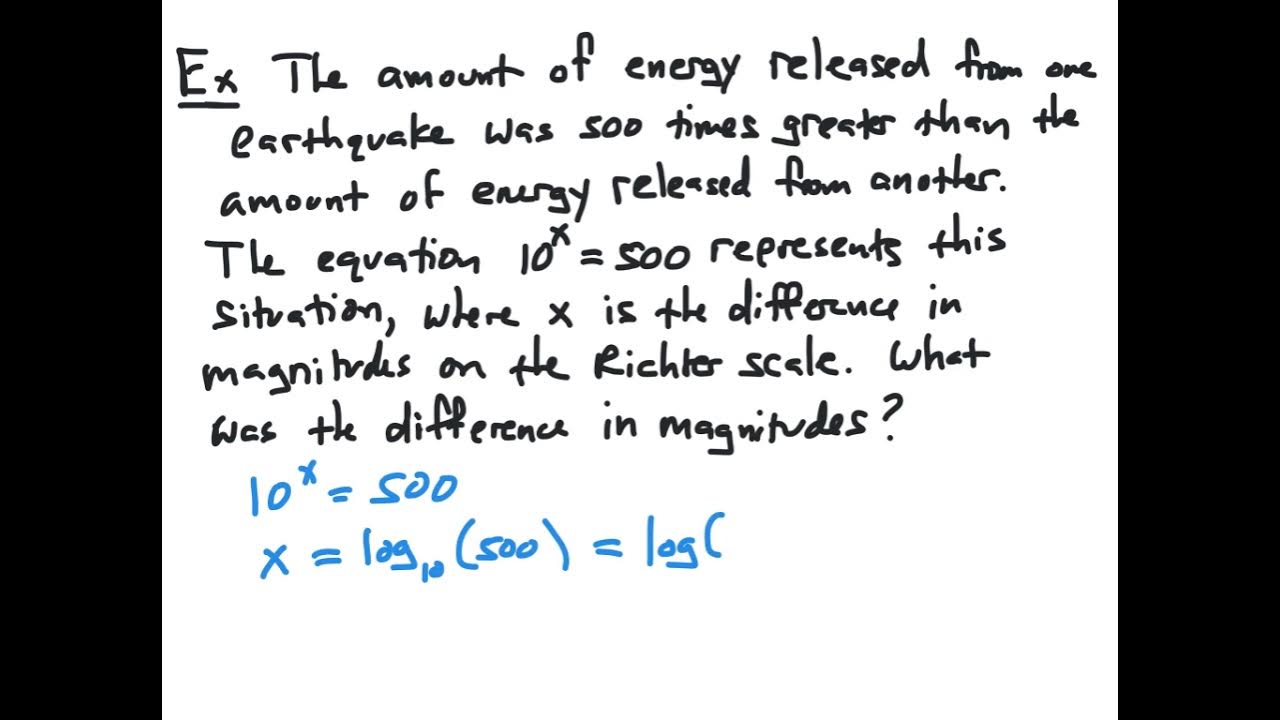 Ex The amount of energy released from one
earthquake was 500 times greater than the
amount of energy released from another.
The equation 10^x = 500 represents this
situation, where x is the difference in
magnitudes on the Richter scale. What
was the difference in magnitudes?
10^x = 500
x = log₁₀(500) = log(